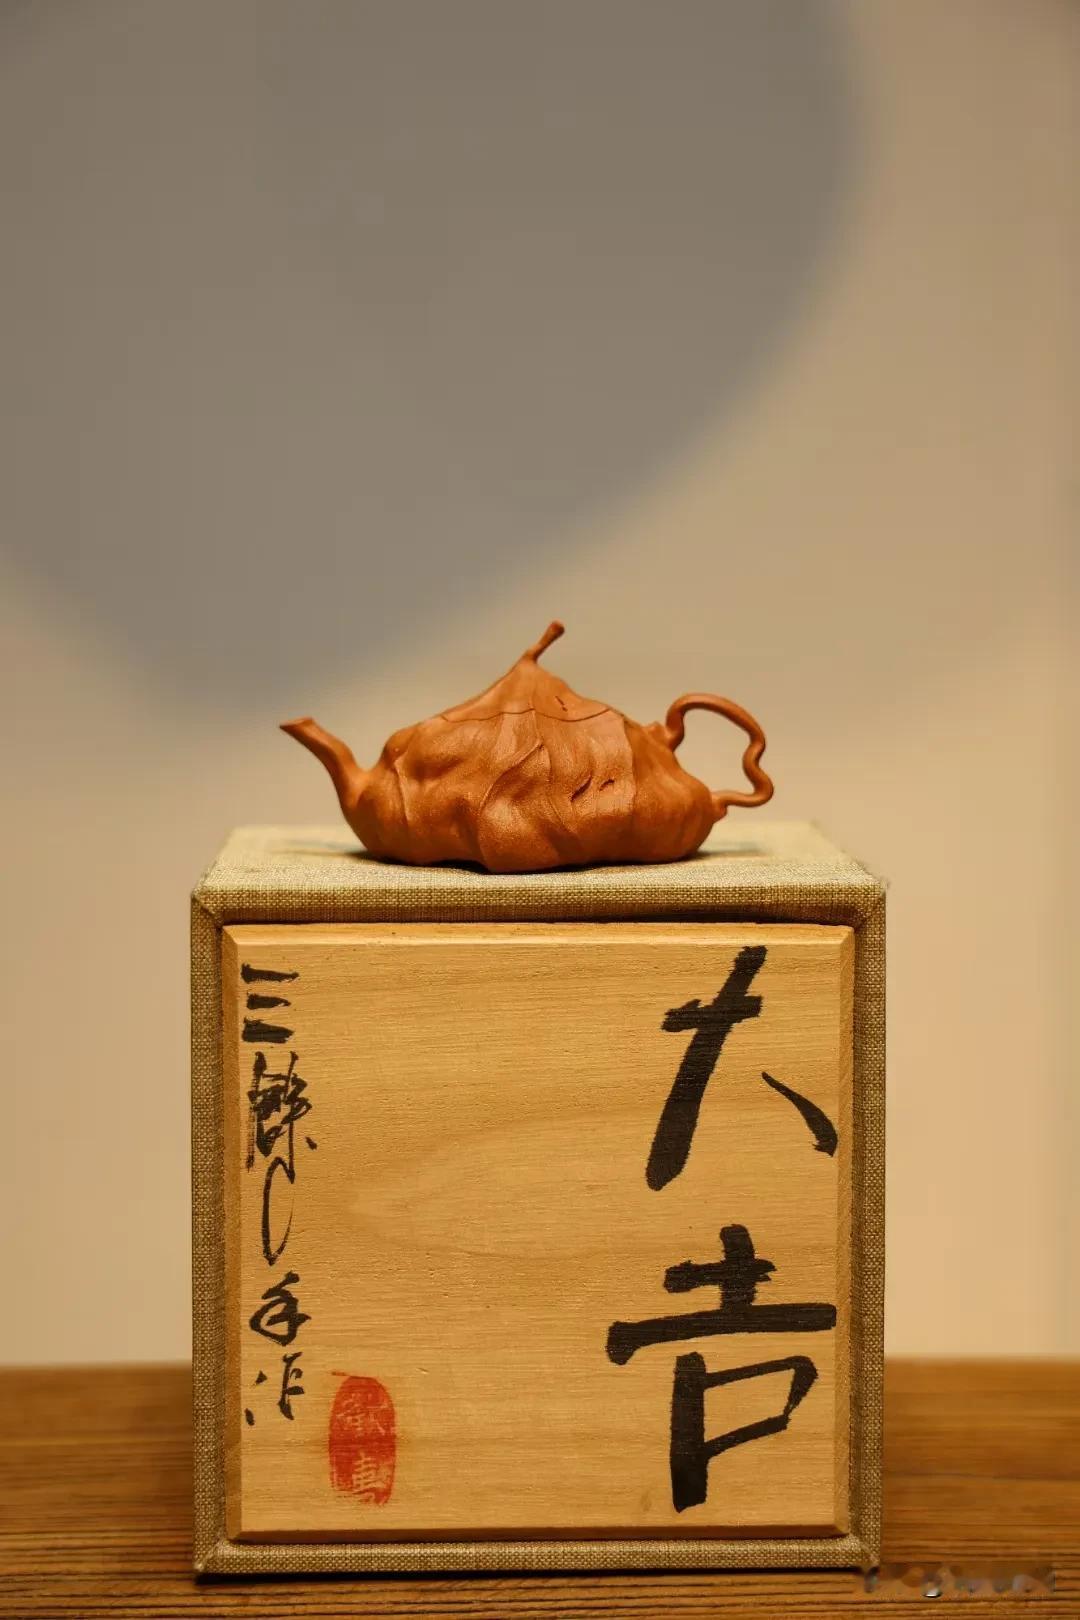 大吉
三餘心手作